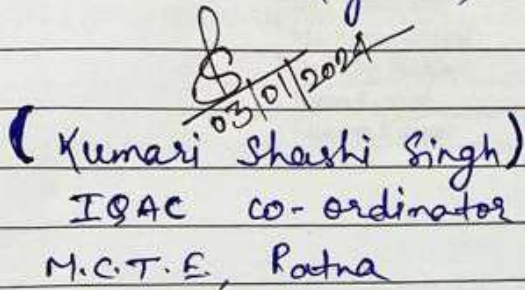 03/01/2024
(Kumari Shashi Singh)
IQAC co-ordinator
M.C.T.E, Patna